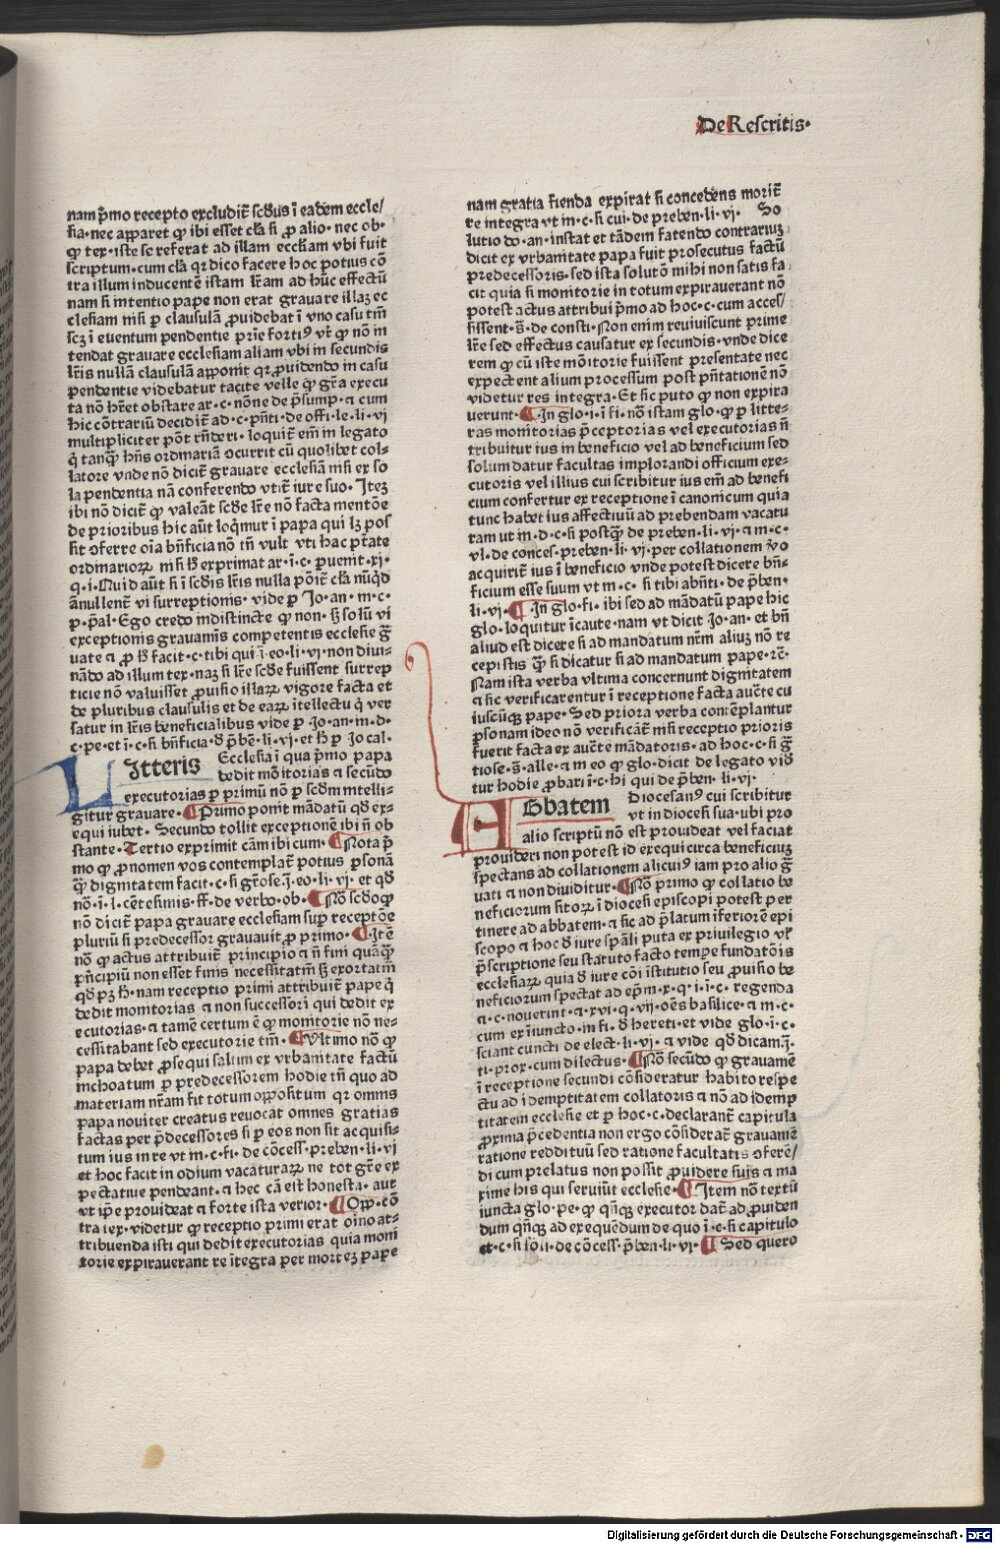 De Rescritis·
nam p̄mo recepto excludit̄ scd̄us ī eadem eccle/
sia· nec apparet ꝙ ibi esset clā si ꝓ alio· nec ob·
ꝙ tex· iste se referat ad illam eccl̄iam vbi fuit
scriptum· cum clā qꝛ dico facere hoc potius cō
tra illum inducentē istam l̄ram ad hūc effectū
nam si intentio pape non erat grauare illaꝫ ec
clesiam nisi p clausulā ꝓuidebat ī vno casu tm̄
scꝫ ī euentum pendentie pr̄ie forti⁹ vr̄ ꝙ nō in
tendat grauare ecclesiam aliam vbi in secundis
l̄ris nullā clausulā apponit qꝛ ꝓuidendo in casu
pendentie videbatur tacite velle ꝙ gr̄a execu
ta nō hr̄et obstare ar· c· nōne de p̄sump· ⁊ cum
hic cōtrariū decidit̄ ad· c· pn̄ti· de offi· le· li· vj
multipliciter pōt rn̄deri· loquit̄ em̄ in legato
q̄ tanꝙ̄ hn̄s ordinariā ocurrit cū quolibet col-
latore vnde nō dicit̄ grauare ecclesiā nisi ex so
la pendentia nā conferendo vtit̄ iure suo· Iteꝫ
ibi nō dicit̄ ꝙ valeāt scd̄e l̄re nō facta mentōe
de prioribus hic aūt loq̄mur ī papa qui lꝫ pos
sit ↄferre oīa bn̄ficia nō tn̄ vult vti hac ptāte
ordinarioꝝ nisi h̄ exprimat ar· ī· c· ꝑuenit· xj·
q· i· Quid aūt si ī scd̄is l̄ris nulla pōit̄ clā nūqd̄
ānullent̄ vi surreptionis· vide p Jo· an· m· c·
p· p̄al· Ego credo indistincte ꝙ non· sꝫ solū vi
exceptionis grauaminis competentis ecclesie ḡ
uate ⁊ ꝓ h̄ facit· c· tibi qui ī· eo· li· vi· non diui-
nādo ad illum tex· naꝫ si l̄re scd̄e fuissent surrep
ticie nō valuisset ꝓuisio illaꝝ vigore facta et
de pluribus clausulis et de eaꝝ ītellectu q̄ ver
satur in l̄ris beneficialibus vide p Jo· an· m· d·
c· pe· et ī· c· si bn̄ficia· d̄ p̄bē· li· vj· et h̄ p Jo cal·
LItteris Ecclesia ī qua p̄mo papa
dedit mōitorias ⁊ secūdo
executorias p primū nō p scd̄m intelli-
gitur grauare· Primo ponit mādatū qd̄ ex-
equi iubet· Secundo tollit exceptionē ibi n̄ ob
stante· Tertio exprimit cām ibi cum· Nota p̄
mo ꝙ ꝓnomen vos contemplat̄ potius ꝑsonā
q̄ dignitatem facit· c· si gr̄ose· j̄· eo· li· vj· et qd̄
nō· ī· l· cētesimis· ff· de verbo· ob· Nō scd̄o ꝙ
nō dicit̄ papa grauare ecclesiam suꝑ receptōe
pluriū si predecessor grauauit ꝓ primo· Itē
nō ꝙ actus attribuit̄ principio ⁊ n̄ fini quāꝙ̄
pn̄cipiū non esset finis necessitatm̄ sꝫ exortatm̄
qd̄ pꝫ h̄· nam receptio primi attribuit̄ pape q̄
dedit monitorias ⁊ non successori qui dedit ex
ecutorias· ⁊ tamē certum ē ꝙ monitorie nō ne-
cessitabant sed executorie tm̄· Vltimo nō ꝙ
papa debet ꝓsequi saltim ex vrbanitate factū
inchoatum p predecessorem hodie tn̄ quo ad
materiam nr̄am fit totum oppositum qꝛ omnis
papa nouiter creatus reuocat omnes gratias
factas per p̄decessores si p eos non sit acquisi-
tum ius in re vt m· c· fi· de cōcess· preben· li· vj
et hoc facit in odium vacaturaꝝ ne tot gr̄e ex
pectatiue pendeant· ⁊ hec cā est honesta· aut
vt ip̄e prouideat ⁊ forte ista verior· Opp· cō
tra tex· videtur ꝙ receptio primi erat oīno at-
tribuenda isti qui dedit executorias quia moni
torie expirauerant re ītegra per morteꝫ pape
nam gratia fienda expirat si concedens morit̄
re integra vt m· c· si cui· de preben· li· vj· So
lutio do· an· instat et tādem fatendo contrariuꝫ
dicit ex vrbanitate papa fuit prosecutus factū
predecessoris· sed ista solutō mihi non satis fa
cit quia si monitorie in totum expirauerant nō
potest actus attribui p̄mo ad hoc· c· cum acces/
sissent· s̄· de consti· Non enim reuiuiscunt prime
l̄re sed effectus causatur ex secundis· vnde dice
rem ꝙ cū iste mōitorie fuissent presentate nec
expectent alium processum post pn̄tationē nō
videtur res integra· Et sic puto ꝙ non expira
uerunt· In glo· i· ī fi· nō istam glo· ꝙ p litte-
ras monitorias p̄ceptorias vel executorias n̄
tribuitur ius in beneficio vel ad beneficium sed
solum datur facultas implorandi officium exe-
cutoris vel illius cui scribitur ius em̄ ad benefi
cium confertur ex receptione ī canonicum quia
tunc habet ius affectiuū ad prebendam vacatu
ram ut m· d· c· si postꝙ̄ de preben· li· vj· ⁊ m· c·
vl· de conces· preben· li· vj· per collationem vo
acquirit̄ ius ī beneficio vnde potest dicere bn̄-
ficium esse suum vt m· c· si tibi abn̄ti· de p̄ben·
li· vj· In glo· fi· ibi sed ad mādatū pape hic
glo· loquitur īcaute· nam vt dicit Jo· an· et bn̄
aliud est dicere si ad mandatum nr̄m aliuꝫ nō re
cepistis ꝙ̄ si dicatur si ad mandatum pape· rc̄·
Nam ista verba vltima concernunt dignitatem
⁊ sic verificarentur ī receptione facta auc̄te cu
iuscūqꝫ pape· Sed priora verba contēplantur
ꝑsonam ideo nō verificāt̄ nisi receptio prioris
fuerit facta ex auc̄te mādatoris· ad hoc· c· si ḡ
tiose· s̄· alle· ⁊ m eo ꝙ glo· dicit de legato vid̄
tur hodie ꝓbari ī· c· hi qui de p̄ben· li· vj·
ABbatem Diocesan⁹ cui scribitur
vt in diocesi sua· ubi pro
alio scriptū nō est prouideat vel faciat
prouideri non potest id exequi circa beneficiuꝫ
spectans ad collationem alicui⁹ iam pro alio ḡ
uati ⁊ non diuiditur· Nō primo ꝙ collatio be
neficiorum sitoꝝ ī diocesi episcopi potest per
tinere ad abbatem· ⁊ sic ad p̄latum īferiorē epi
scopo ⁊ hoc d̄ iure sp̄ali puta ex priuilegio vl̄
p̄scriptione seu statuto facto tempe fundatōis
ecclesiaꝝ quia d̄ iure cōi īstitutio seu ꝓuisio be
neficiorum spectat ad ep̄m· x· q· i· ī· c· regenda
⁊ c· nouerint· ⁊ xvi· q· vij· oēs basilice· ⁊ m· c·
cum ex īiuncto· in fi· d̄ hereti· et vide glo· ī· c·
sciant cuncti de elect· li· vj· ⁊ vide qd̄ dicam· j̄·
ti· prox· cum dilectus· Nō secūdo ꝙ grauamē
ī receptione secundi cōsideratur habito respe
ctu ad idemptitatem collatoris ⁊ nō ad idemp
titatem ecclesie et p hoc· c· declarant̄ capitula
ꝓxima p̄cedentia non ergo cōsiderat̄ grauamē
ratione reddituū sed ratione facultatis ↄferē/
di cum prelatus non possit ꝓuidere suis ⁊ ma
xime his qui seruiūt ecclesie· Item nō textū
iuncta glo· pe· ꝙ qn̄qꝫ executor dat̄ ad ꝓuiden
dum qn̄qꝫ ad exequēdum de quo ī· c· si capitulo
et· c· si soli· de cōcess· p̄ben· li· vj· Sed quero
Digitalisierung gefördert durch die Deutsche Forschungsgemeinschaft - DFG